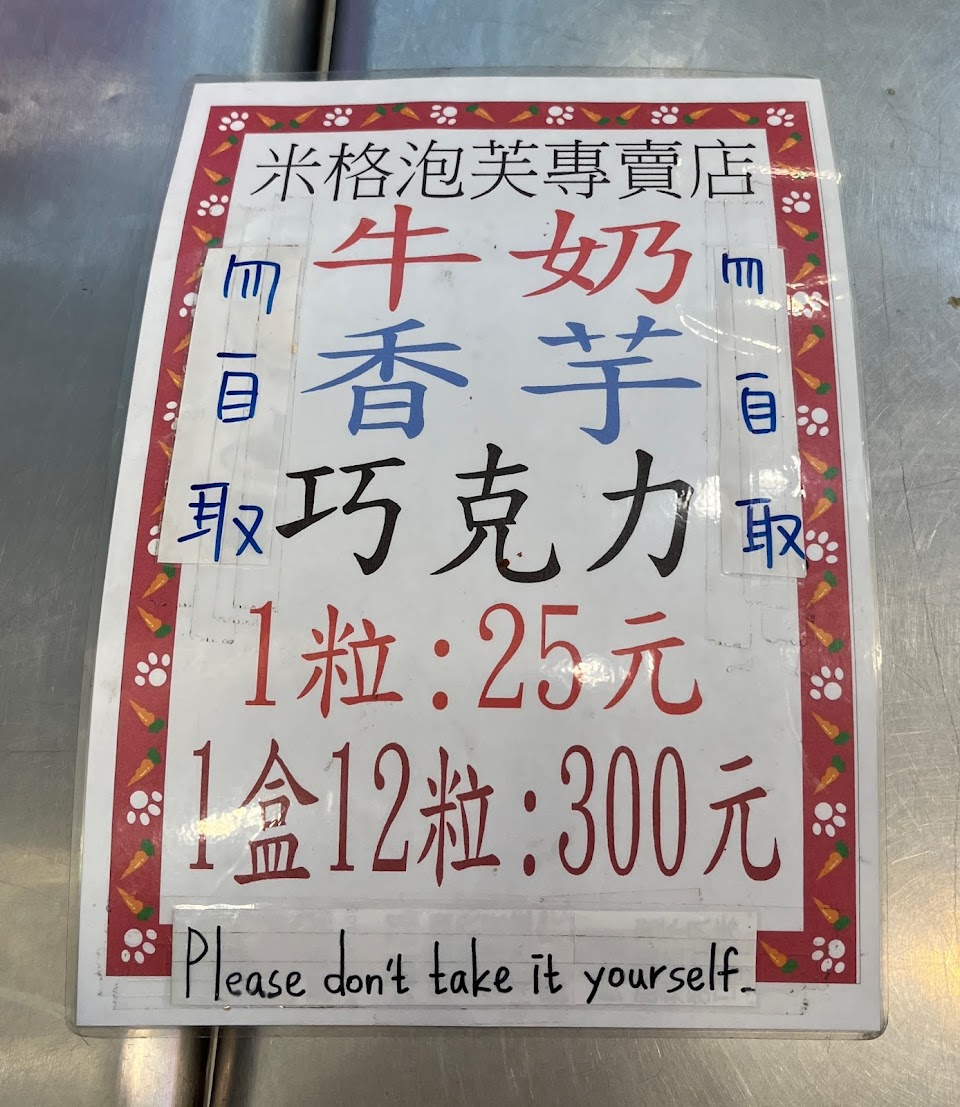 米格泡芙專賣店
牛奶
香芋
巧克力
勿自取
勿自取
1粒:25元
1盒12粒:300元
Please don't take it yourself.